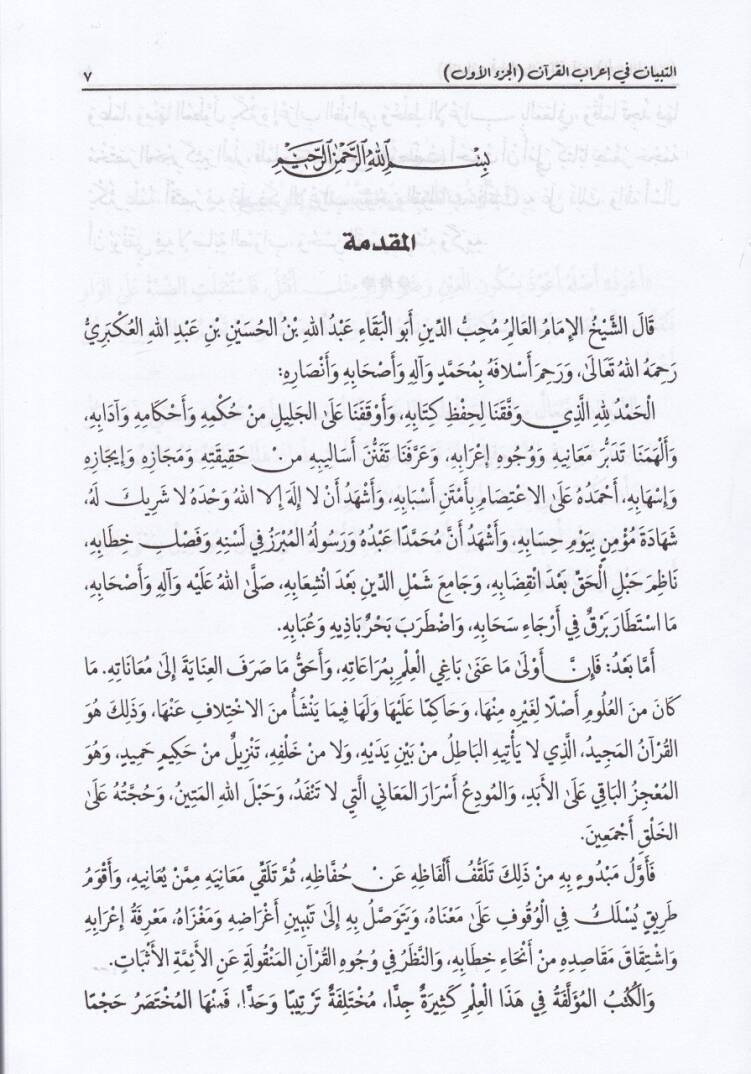 التبيان في إعراب القرآن (الجزء الأول) ٧
بِسْمِ اللهِ الرَّحْمٰنِ الرَّحِيْمِ
المقدمة
قَالَ الشَّيْخُ الإِمَامُ العَالِمُ مُحِبُّ الدِّينِ أَبو البَقَاءِ عَبْدُ اللهِ بْنُ الحُسَيْنِ بْنِ عَبْدِ اللهِ العُكْبَرِيُّ
رَحِمَهُ اللهُ تَعَالَى، وَرَحِمَ أَسْلَافَهُ بِمُحَمَّدٍ وَآلِهِ وَأَصْحَابِهِ وَأَنْصَارِهِ:
الْحَمْدُ لِلهِ الَّذِي وَفَّقَنَا لِحِفْظِ كِتَابِهِ، وَأَوْقَفَنَا عَلَى الجَلِيلِ مِنْ حُكْمِهِ وَأَحْكَامِهِ وَآدَابِهِ،
وَأَلْهَمَنَا تَدَبُّرَ مَعَانِيهِ وَوُجُوهِ إِعْرَابِهِ، وَعَرَّفَنَا تَفَنُّنَ أَسَالِيبِهِ مِنْ حَقِيقَتِهِ وَمَجَازِهِ وَإِيجَازِهِ
وَإِسْهَابِهِ، أَحْمَدُهُ عَلَى الِاعْتِصَامِ بِأَمْتَنِ أَسْبَابِهِ، وَأَشْهَدُ أَنْ لَا إِلَهَ إِلا اللهُ وَحْدَهُ لَا شَرِيكَ لَهُ،
شَهَادَةَ مُؤْمِنٍ بِيَوْمِ حِسَابِهِ، وَأَشْهَدُ أَنَّ مُحَمَّدًا عَبْدُهُ وَرَسُولُهُ المُبَرِّزُ فِي لَسَنِهِ وَفَصْلِ خِطَابِهِ،
نَاظِمَ حَبْلِ الحَقِّ بَعْدَ انْقِضَابِهِ، وَجَامِعَ شَمْلِ الدِّينِ بَعْدَ انْشِعَابِهِ، صَلَّى اللهُ عَلَيْهِ وَآلِهِ وَأَصْحَابِهِ،
مَا اسْتَطَارَ بَرْقٌ فِي أَرْجَاءِ سَحَابِهِ، وَاضْطَرَبَ بَحْرٌ بَاذِيهِ وَعُبَابِهِ.
أَمَّا بَعْدُ: فَإِنَّ أَوْلَى مَا عَنَى بَاغِي العِلْمِ بِمُرَاعَاتِهِ، وَأَحَقُّ مَا صَرَفَ العِنَايَةَ إِلَى مُعَانَاتِهِ. مَا
كَانَ مِنَ العُلُومِ أَصْلًا لِغَيْرِهِ مِنْهَا، وَحَاكِمًا عَلَيْهَا وَلَهَا فِيمَا يَنْشَأُ مِنَ الاخْتِلَافِ عَنْهَا، وَذَلِكَ هُوَ
القُرْآنُ المَجِيدُ، الَّذِي لَا يَأْتِيهِ البَاطِلُ مِنْ بَيْنِ يَدَيْهِ، وَلَا مِنْ خَلْفِهِ، تَنْزِيلٌ مِنْ حَكِيمٍ حَمِيدٍ، وَهُوَ
المُعْجِزُ البَاقِي عَلَى الأَبَدِ، وَالمُودِعُ أَسْرَارَ المَعَانِي الَّتِي لَا تَنْفَدُ، وَحَبْلُ اللهِ المَتِينُ، وَحُجَّتُهُ عَلَى
الخَلْقِ أَجْمَعِينَ.
فَأَوَّلُ مَبْدُوءٍ بِهِ مِنْ ذَلِكَ تَلَقُّفُ أَلْفَاظِهِ عَنْ حُفَّاظِهِ، ثُمَّ تَلَقِّي مَعَانِيَهِ مِمَّنْ يُعَانِيهِ، وَأَقْوَمُ
طَرِيقٍ يُسْلَكُ فِي الْوُقُوفِ عَلَى مَعْنَاهُ، وَيَتَوَصَّلُ بِهِ إِلَى تَبْيِينِ أَغْرَاضِهِ وَمَغْزَاهُ، مَعْرِفَةُ إِعْرَابِهِ
وَاشْتِقَاقَ مَقَاصِدِهِ مِنْ أَنْحَاءِ خِطَابِهِ، وَالنَّظَرُ فِي وُجُوهِ القُرْآنِ المَنْقُولَةِ عَنِ الأَئِمَّةِ الأَثْبَاتِ.
وَالْكُتُبُ المُؤَلَّفَةُ فِي هَذَا الْعِلْمِ كَثِيرَةٌ جِدًّا، مُخْتَلِفَةٌ تَرْتِيبًا وَحَدًّا!، فَمِنْهَا المُخْتَصَرُ حَجْمًا